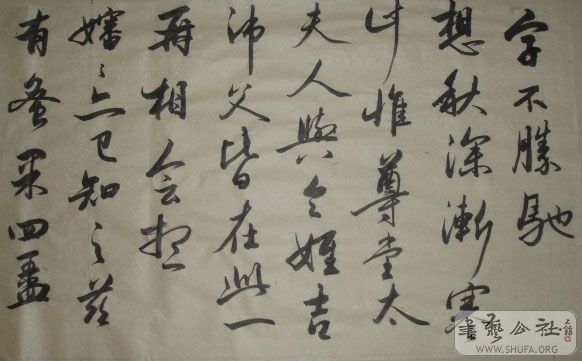 字不勝馳
想秋深漸寒
計惟尊堂太
夫人與令姪吉
師父皆在此一
再相会想
嬸〻亦已知之茲
有蜜果四盝
書藝公社
WWW.SHUFA.ORG